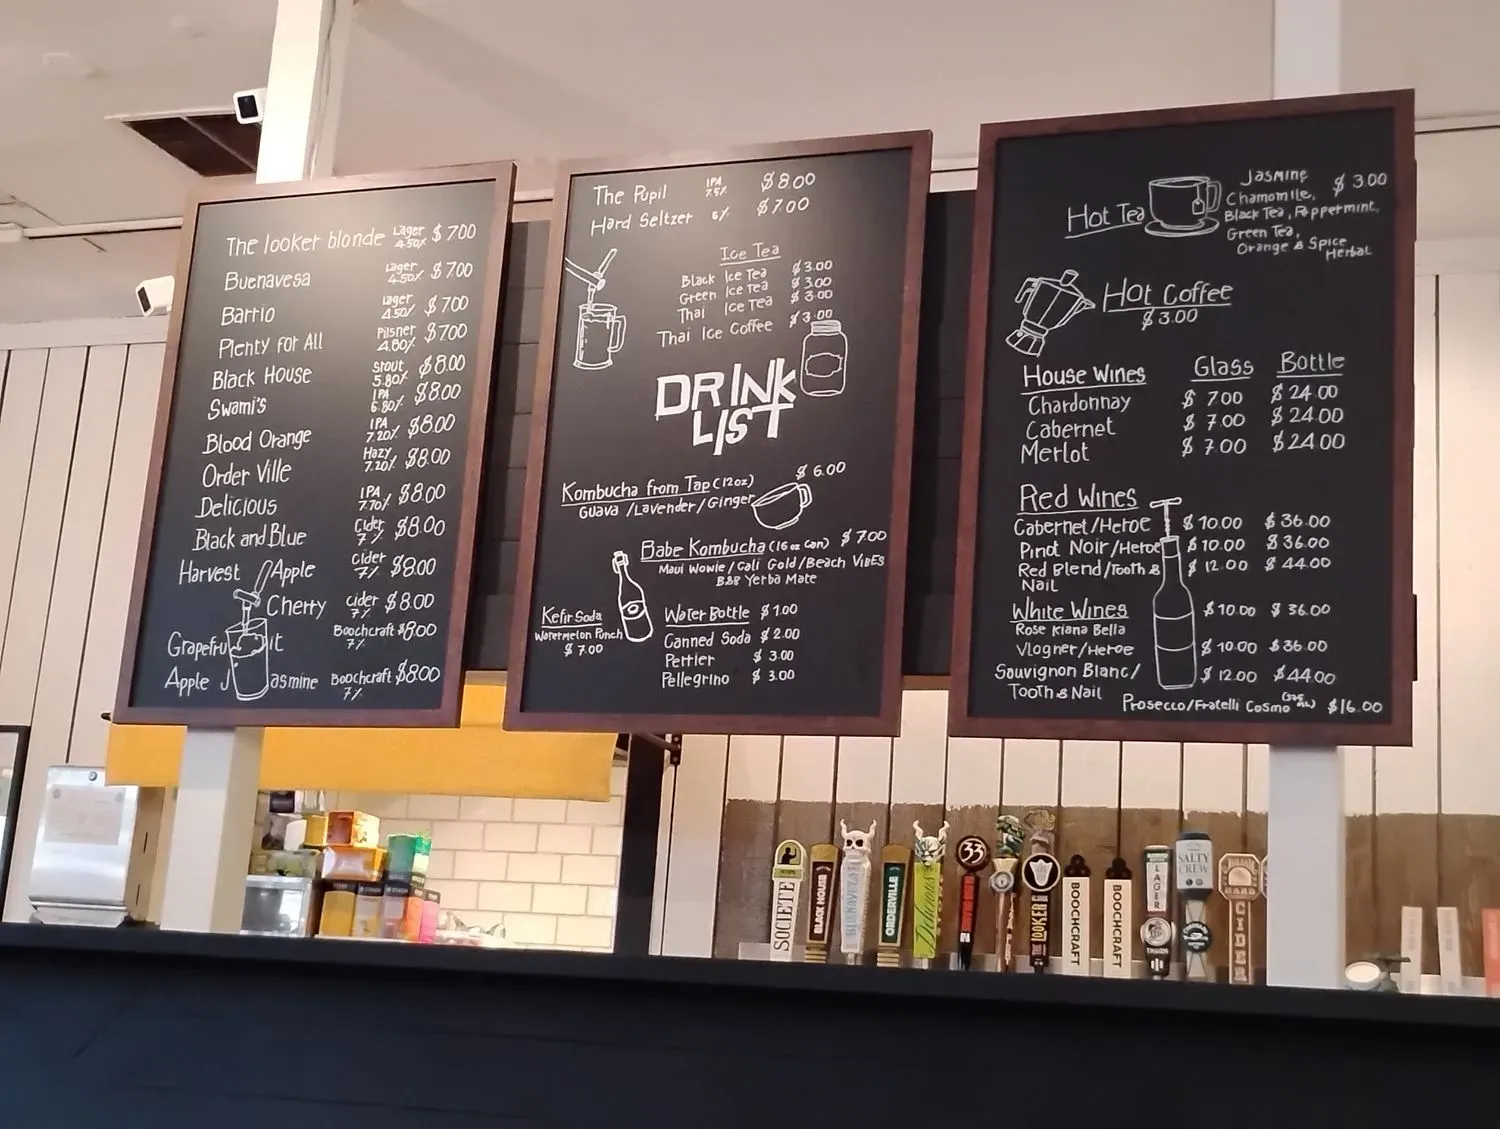 The looker blonde Lager 4.50% $7.00
Buenavesa Lager 4.50% $7.00
Barrio Lager 4.50% $7.00
Plenty for All Pilsner 4.80% $7.00
Black House Stout 5.80% $8.00
Swami's IPA 6.80% $8.00
Blood Orange IPA 7.20% $8.00
Order Ville Hazy 7.20% $8.00
Delicious IPA 7.70% $8.00
Black and Blue Cider 7% $8.00
Harvest Apple Cider 7% $8.00
Cherry Cider 7% $8.00
Grapefru it Boochcraft 7% $8.00
Apple Jasmine Boochcraft 7% $8.00
The Pupil IPA 7.5% $8.00
Hard Seltzer 5% $7.00
Ice Tea
Black Ice Tea $3.00
Green Ice Tea $3.00
Thai Ice Tea $3.00
Thai Ice Coffee $3.00
DRINK
LIST
Kombucha from Tap (12oz) $6.00
Guava /Lavender/Ginger
Babe Kombucha (16 oz Can) $7.00
Maui Wowie/Cali Gold/Beach VibES
B&B Yerba Mate
Kefir Soda
Watermelon Punch
$7.00
Water Bottle $1.00
Canned Soda $2.00
Perrier $3.00
Pellegrino $3.00
Hot Tea
Jasmine $3.00
Chamomile,
Black Tea, Peppermint,
Green Tea,
Orange & Spice
Herbal
Hot Coffee
$3.00
House Wines Glass Bottle
Chardonnay $7.00 $24.00
Cabernet $7.00 $24.00
Merlot $7.00 $24.00
Red Wines
Cabernet/Heroe $10.00 $36.00
Pinot Noir/Heroe $10.00 $36.00
Red Blend/Tooth & $12.00 $44.00
Nail
White Wines $10.00 $36.00
Rose Kiana Bella
Viogner/Heroe $10.00 $36.00
Sauvignon Blanc/ $12.00 $44.00
Tooth & Nail
Prosecco/Fratelli Cosmo (375 mL) $16.00
SOCIETE
BLACK HOUSE
BUENAVEZA
ORDERVILLE
Delicious
33
IPA
THE LOOKER
BOOCHCRAFT
BOOCHCRAFT
LAGER
SALTY
CREW
JULIAN
HARD
CIDER